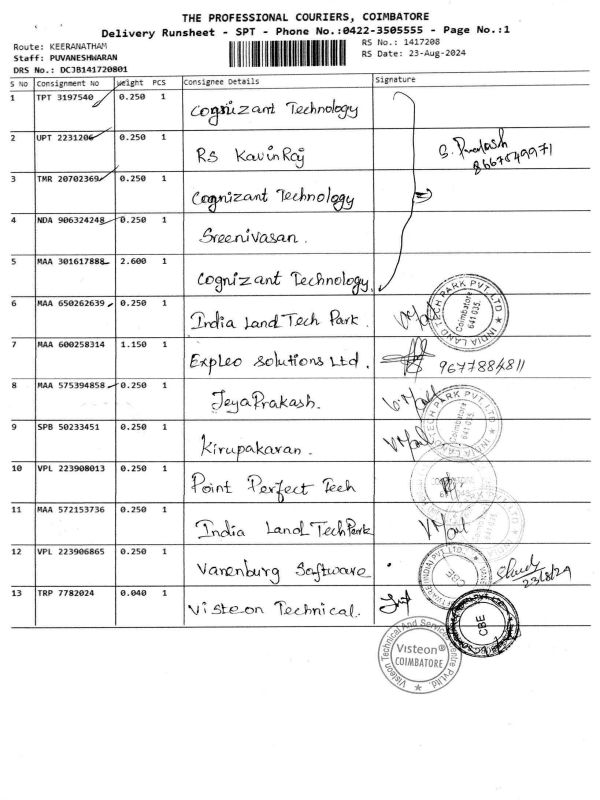 THE PROFESSIONAL COURIERS, COIMBATORE
Delivery Runsheet - SPT - Phone No.:0422-3505555 - Page No.:1
Route: KEERANATHAM
RS No.: 1417208
Staff: PUVANESHWARAN
RS Date: 23-Aug-2024
DRS No.: DCJB141720801
S No Consignment No Weight PCS Consignee Details Signature
1 TPT 3197540 0.250 1 Cognizant Technology
2 UPT 2231206 0.250 1 RS KavinRaj 8667549971
3 TMR 20702369 0.250 1 Cognizant Technology
4 NDA 906324248 0.250 1 Sreenivasan.
5 MAA 301617888 2.600 1 Cognizant Technology.
6 MAA 650262639 0.250 1 India Land Tech Park. INDIA LAND TECH PARK PVT LTD Coimbatore 641 035.
7 MAA 600258314 1.150 1 Expleo Solutions Ltd. 9677884811
8 MAA 575394858 0.250 1 JeyaPrakash.
9 SPB 50233451 0.250 1 Kirupakaran.
10 VPL 223908013 0.250 1 Point Perfect Tech
11 MAA 572153736 0.250 1 India Land Tech Park
12 VPL 223906865 0.250 1 Vanenburg Software CBE
13 TRP 7782024 0.040 1 Visteon Technical.
CBE
Visteon Technical And Services Centre Pvt Ltd.
Visteon®
COIMBATORE